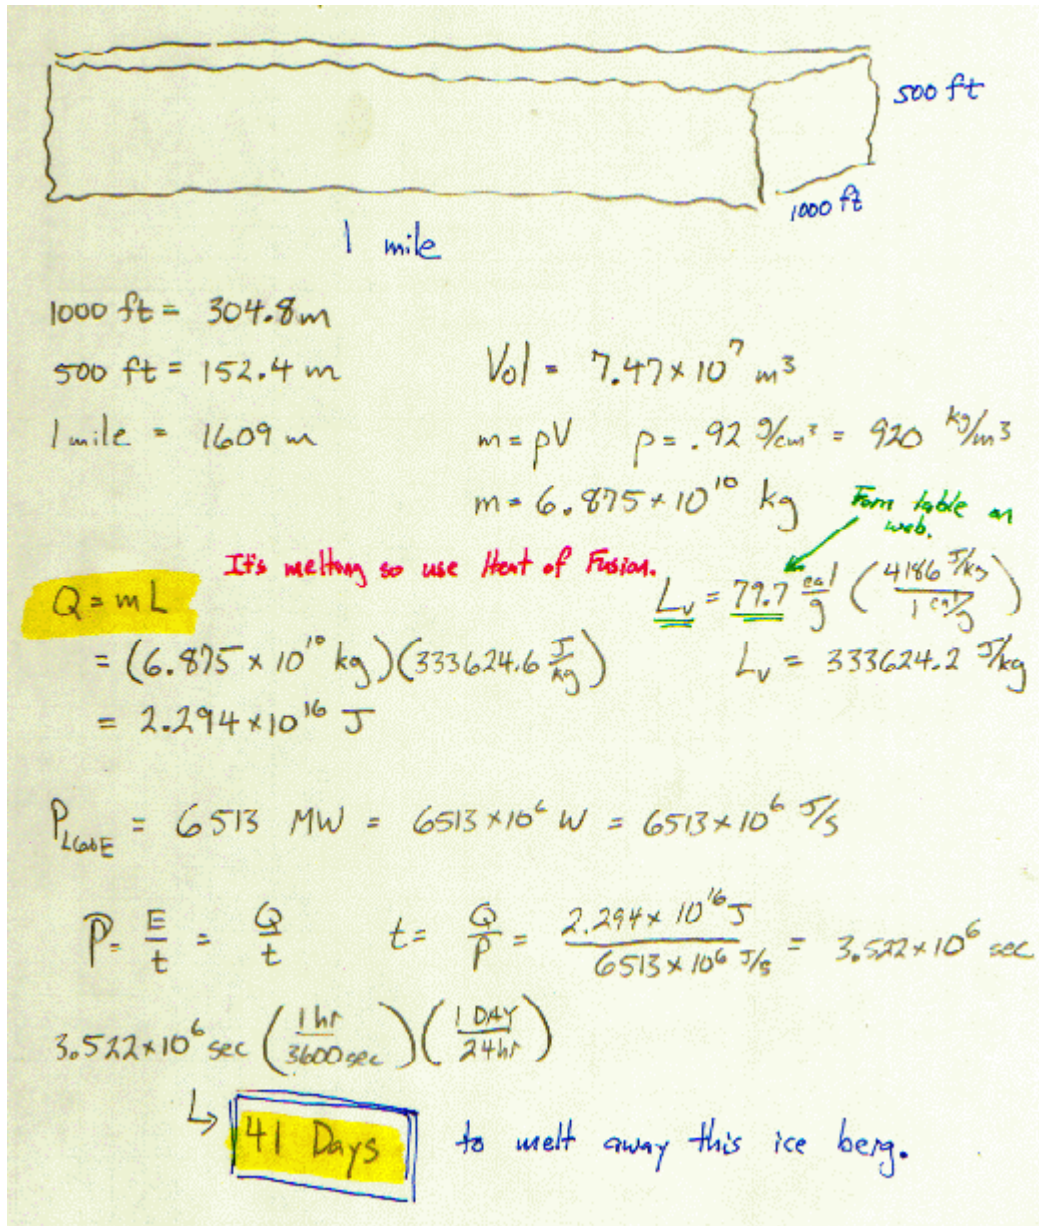 500 ft
1000 ft
1 mile
1000 ft = 304.8m
500 ft = 152.4 m
Vol = 7.47 × 10⁷ m³
1 mile = 1609 m
m = ρV ρ = .92 g/cm³ = 920 kg/m³
m = 6.875 × 10¹⁰ kg
From table on
web.
It's melting so use Heat of Fusion.
Q = mL
L_v = 79.7 cal/g (4186 J/kg / 1 cal/g)
= (6.875 × 10¹⁰ kg)(333624.6 J/kg)
L_v = 333624.2 J/kg
= 2.294 × 10¹⁶ J
P = 6513 MW = 6513 × 10⁶ W = 6513 × 10⁶ J/s
P = E/t = Q/t t = Q/P = 2.294 × 10¹⁶ J / 6513 × 10⁶ J/s = 3.522 × 10⁶ sec
3.522 × 10⁶ sec (1 hr / 3600 sec)(1 DAY / 24 hr)
↳ 41 Days to melt away this ice berg.